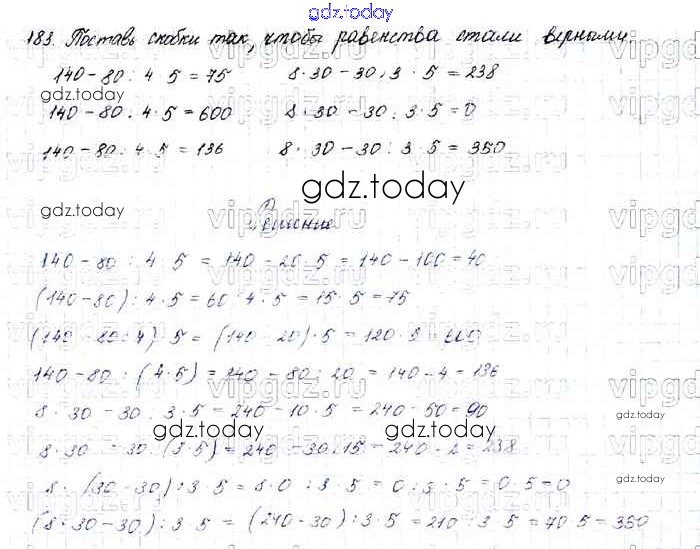 gdz.today
183. Поставь скобки так, чтобы равенства стали верными
140 - 80 : 4 · 5 = 75 8 · 30 - 30 : 3 · 5 = 238
gdz.today
140 - 80 : 4 · 5 = 600 8 · 30 - 30 : 3 · 5 = 0
140 - 80 : 4 · 5 = 136 8 · 30 - 30 : 3 · 5 = 350
gdz.today
gdz.today vipgdz.ru
Решение
140 - 80 : 4 · 5 = 140 - 20 · 5 = 140 - 100 = 40
(140 - 80) : 4 · 5 = 60 : 4 · 5 = 15 · 5 = 75
(140 - 80 : 4) · 5 = (140 - 20) · 5 = 120 · 5 = 600
140 - 80 : (4 · 5) = 140 - 80 : 20 = 140 - 4 = 136
8 · 30 - 30 : 3 · 5 = 240 - 10 · 5 = 240 - 50 = 90
gdz.today gdz.today gdz.today
8 · 30 - 30 : (3 · 5) = 240 - 30 : 15 = 240 - 2 = 238
gdz.today
8 · (30 - 30) : 3 · 5 = 8 · 0 : 3 · 5 = 0 : 3 · 5 = 0 · 5 = 0
(8 · 30 - 30) : 3 · 5 = (240 - 30) : 3 · 5 = 210 : 3 · 5 = 70 · 5 = 350